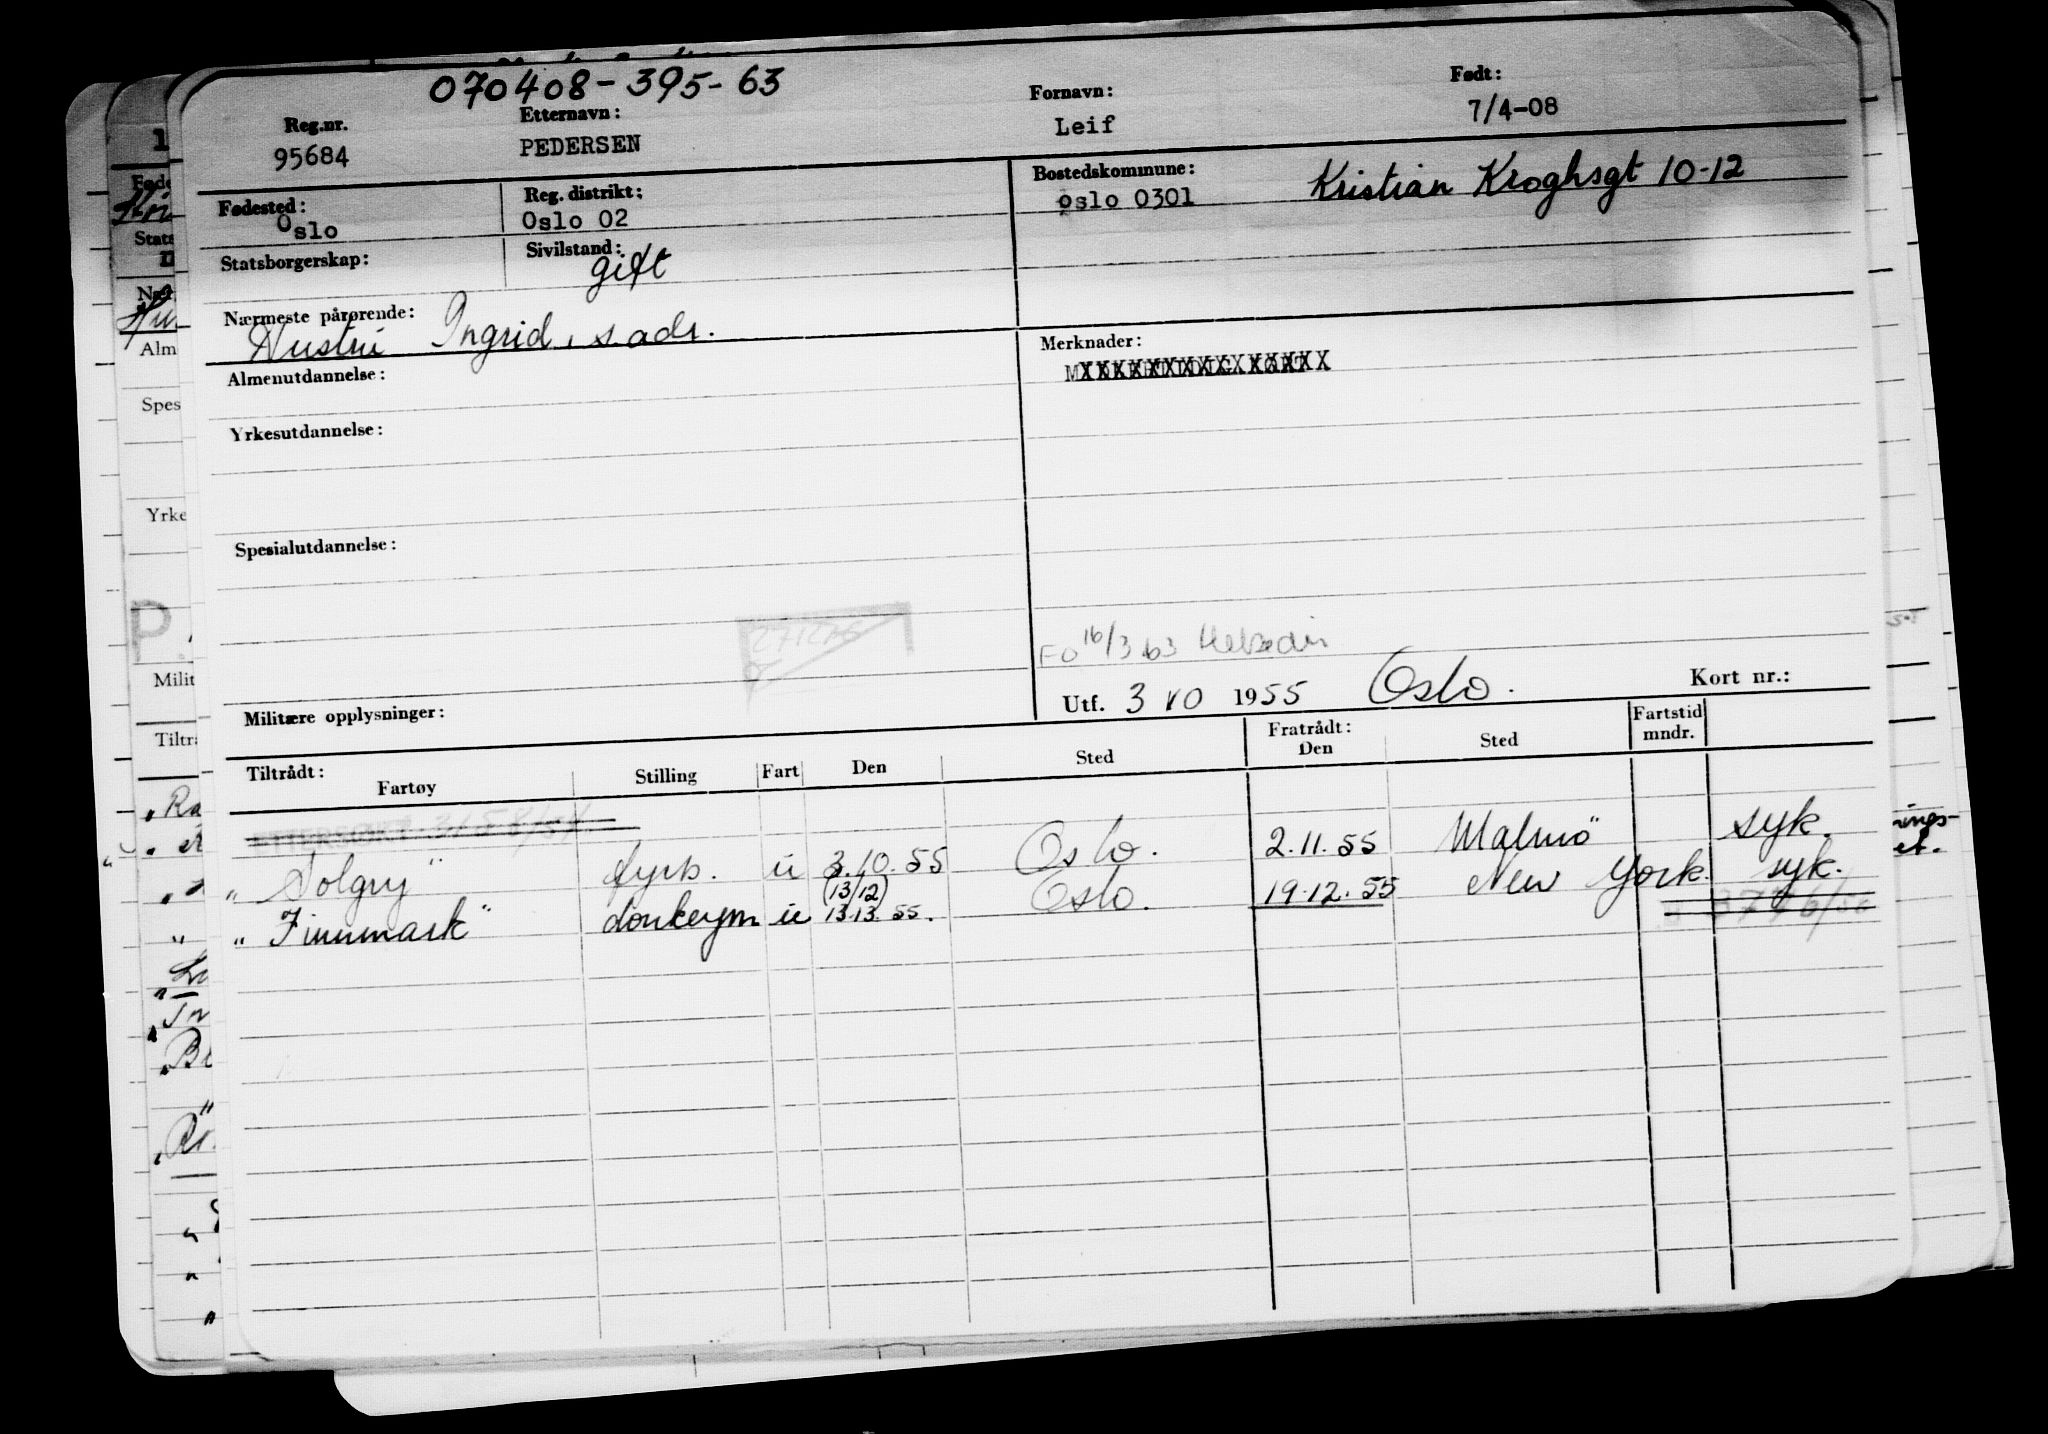 070408-395-63
Reg.nr. Etternavn: Fornavn: Født:
95684 PEDERSEN Leif 7/4-08
Fødested: Reg. distrikt: Bostedskommune: Kristian Kroghsgt 10-12
Oslo Oslo 02 oslo 0301
Statsborgerskap: Sivilstand:
gift
Nærmeste pårørende:
Hustru Ingrid, s adr.
Merknader:
Almenutdannelse:
Yrkesutdannelse:
Spesialutdannelse:
FO 16/3 63
Utf. 3 10 1955 Oslo. Kort nr.:
Militære opplysninger:
Tiltrådt: Fratrådt: Fartstid
Fartøy Stilling Fart Den Sted Den Sted mndr.
"Solgry" fyrb. u 3.10.55 Oslo. 2.11.55 Malmö syk.
(13/12)
"Finnmark" donkeym u 13.13.55. Oslo. 19.12.55 New York. syk.